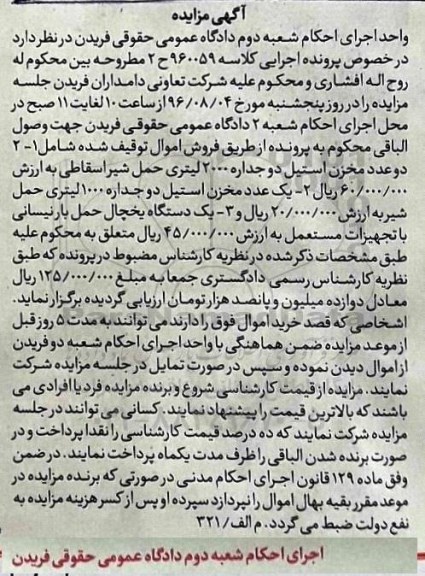 آگهی مزایده
واحد اجرای احکام شعبه دوم دادگاه عمومی حقوقی فریدن در نظر دارد
در خصوص پرونده اجرایی کلاسه ۹۶۰۰۵۹ ح ۲ مطروحه بین محکوم له
روح اله افشاری و محکوم علیه شرکت تعاونی دامداران فریدن جلسه
مزایده را در روز پنجشنبه مورخ ۹۶/۰۸/۰۴ از ساعت ۱۰ لغایت ۱۱ صبح در
محل اجرای احکام شعبه ۲ دادگاه عمومی حقوقی فریدن جهت وصول
الباقی محکوم به پرونده از طریق فروش اموال توقیف شده شامل ۱- ۲
دو عدد مخزن استیل دو جداره ۲۰۰۰ لیتری حمل شیر اسقاطی به ارزش
۶۰/۰۰۰/۰۰۰ ریال ۲- یک عدد مخزن استیل دو جداره ۱۰۰۰ لیتری حمل
شیر به ارزش ۲۰/۰۰۰/۰۰۰ ریال و ۳- یک دستگاه یخچال حمل بار نیسانی
با تجهیزات مستعمل به ارزش ۴۵/۰۰۰/۰۰۰ ریال متعلق به محکوم علیه
طبق مشخصات ذکر شده در نظریه کارشناس مضبوط در پرونده که طبق
نظریه کارشناس رسمی دادگستری جمعا به مبلغ ۱۲۵/۰۰۰/۰۰۰ ریال
معادل دوازده میلیون و پانصد هزار تومان ارزیابی گردیده برگزار نماید.
اشخاصی که قصد خرید اموال فوق را دارند می توانند به مدت ۵ روز قبل
از موعد مزایده ضمن هماهنگی با واحد اجرای احکام شعبه دو فریدن
از اموال دیدن نموده و سپس در صورت تمایل در جلسه مزایده شرکت
نمایند. مزایده از قیمت کارشناسی شروع و برنده مزایده فرد یا افرادی می
باشند که بالاترین قیمت را پیشنهاد نمایند. کسانی می توانند در جلسه
مزایده شرکت نمایند که ده درصد قیمت کارشناسی را نقدا پرداخت و در
صورت برنده شدن الباقی را ظرف مدت یکماه پرداخت نمایند. در ضمن
وفق ماده ۱۲۹ قانون اجرای احکام مدنی در صورتی که برنده مزایده در
موعد مقرر بقیه بهای اموال را نپردازد سپرده او پس از کسر هزینه مزایده به
نفع دولت ضبط می گردد. م الف/ ۳۲۱
اجرای احکام شعبه دوم دادگاه عمومی حقوقی فریدن